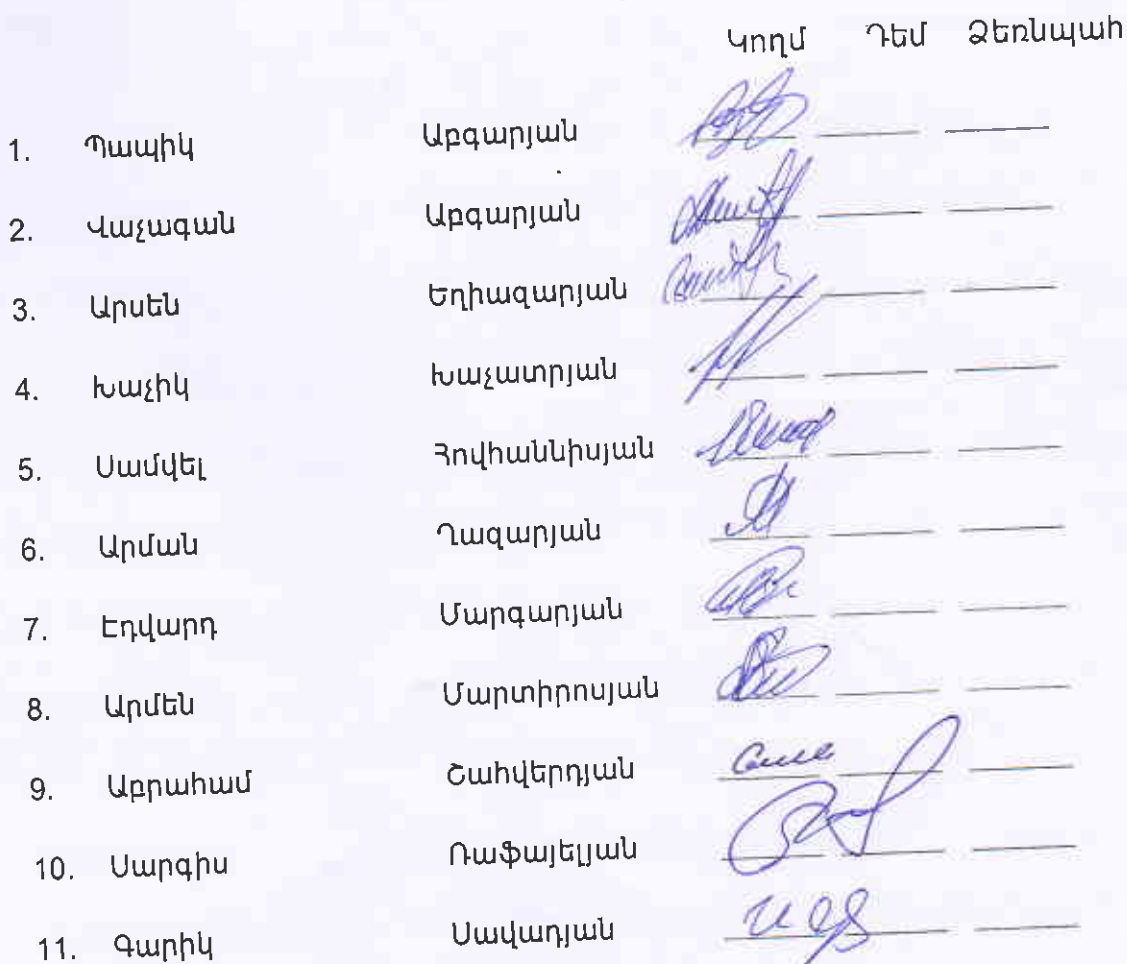 Կողմ Դեմ Ձեռնպահ
1. Պապիկ Աբգարյան
2. Վաչագան Աբգարյան
3. Արսեն Եղիազարյան
4. Խաչիկ Խաչատրյան
5. Սամվել Հովհաննիսյան
6. Արման Ղազարյան
7. Էդվարդ Մարգարյան
8. Արմեն Մարտիրոսյան
9. Աբրահամ Շահվերդյան
10. Սարգիս Ռաֆայելյան
11. Գարիկ Սավադյան